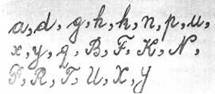 a, d, g, h, k, n, p, u,
x, y, q, B, F, K, N,
P, R, T, U, X, Y